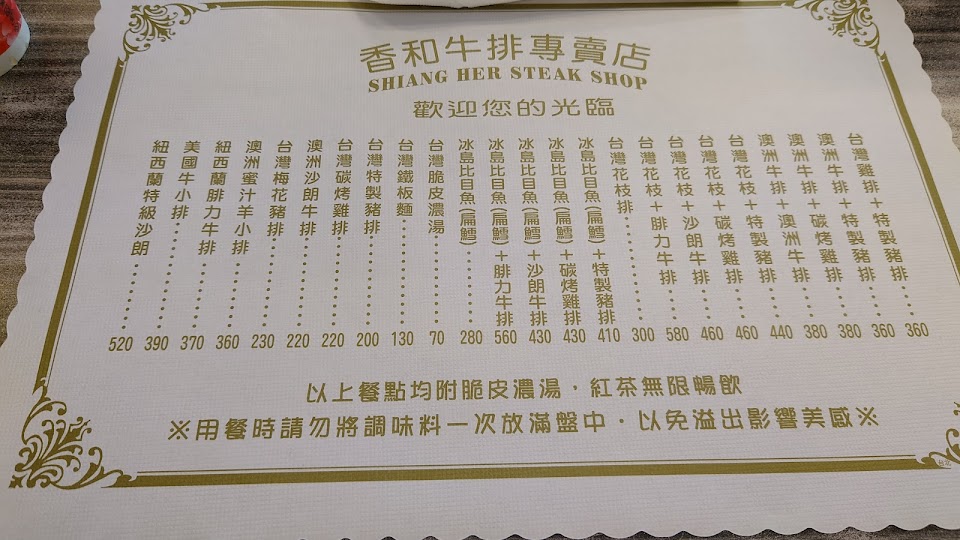 香和牛排專賣店
SHIANG HER STEAK SHOP
歡迎您的光臨
紐西蘭特級沙朗……520
美國牛小排……390
紐西蘭腓力牛排……370
澳洲蜜汁羊小排……360
台灣梅花豬排……230
澳洲沙朗牛排……220
台灣碳烤雞排……220
台灣特製豬排……200
台灣鐵板麵……130
台灣脆皮濃湯……70
冰島比目魚(扁鱈)……280
冰島比目魚(扁鱈)+腓力牛排560
冰島比目魚(扁鱈)+沙朗牛排430
冰島比目魚(扁鱈)+碳烤雞排430
冰島比目魚(扁鱈)+特製豬排410
台灣花枝排……300
台灣花枝+腓力牛排……580
台灣花枝+沙朗牛排……460
台灣花枝+碳烤雞排……460
台灣花枝+特製豬排……440
澳洲牛排+澳洲牛排……380
澳洲牛排+碳烤雞排……380
澳洲牛排+特製豬排……360
台灣雞排+特製豬排……360
以上餐點均附脆皮濃湯．紅茶無限暢飲
※用餐時請勿將調味料一次放滿盤中．以免溢出影響美感※